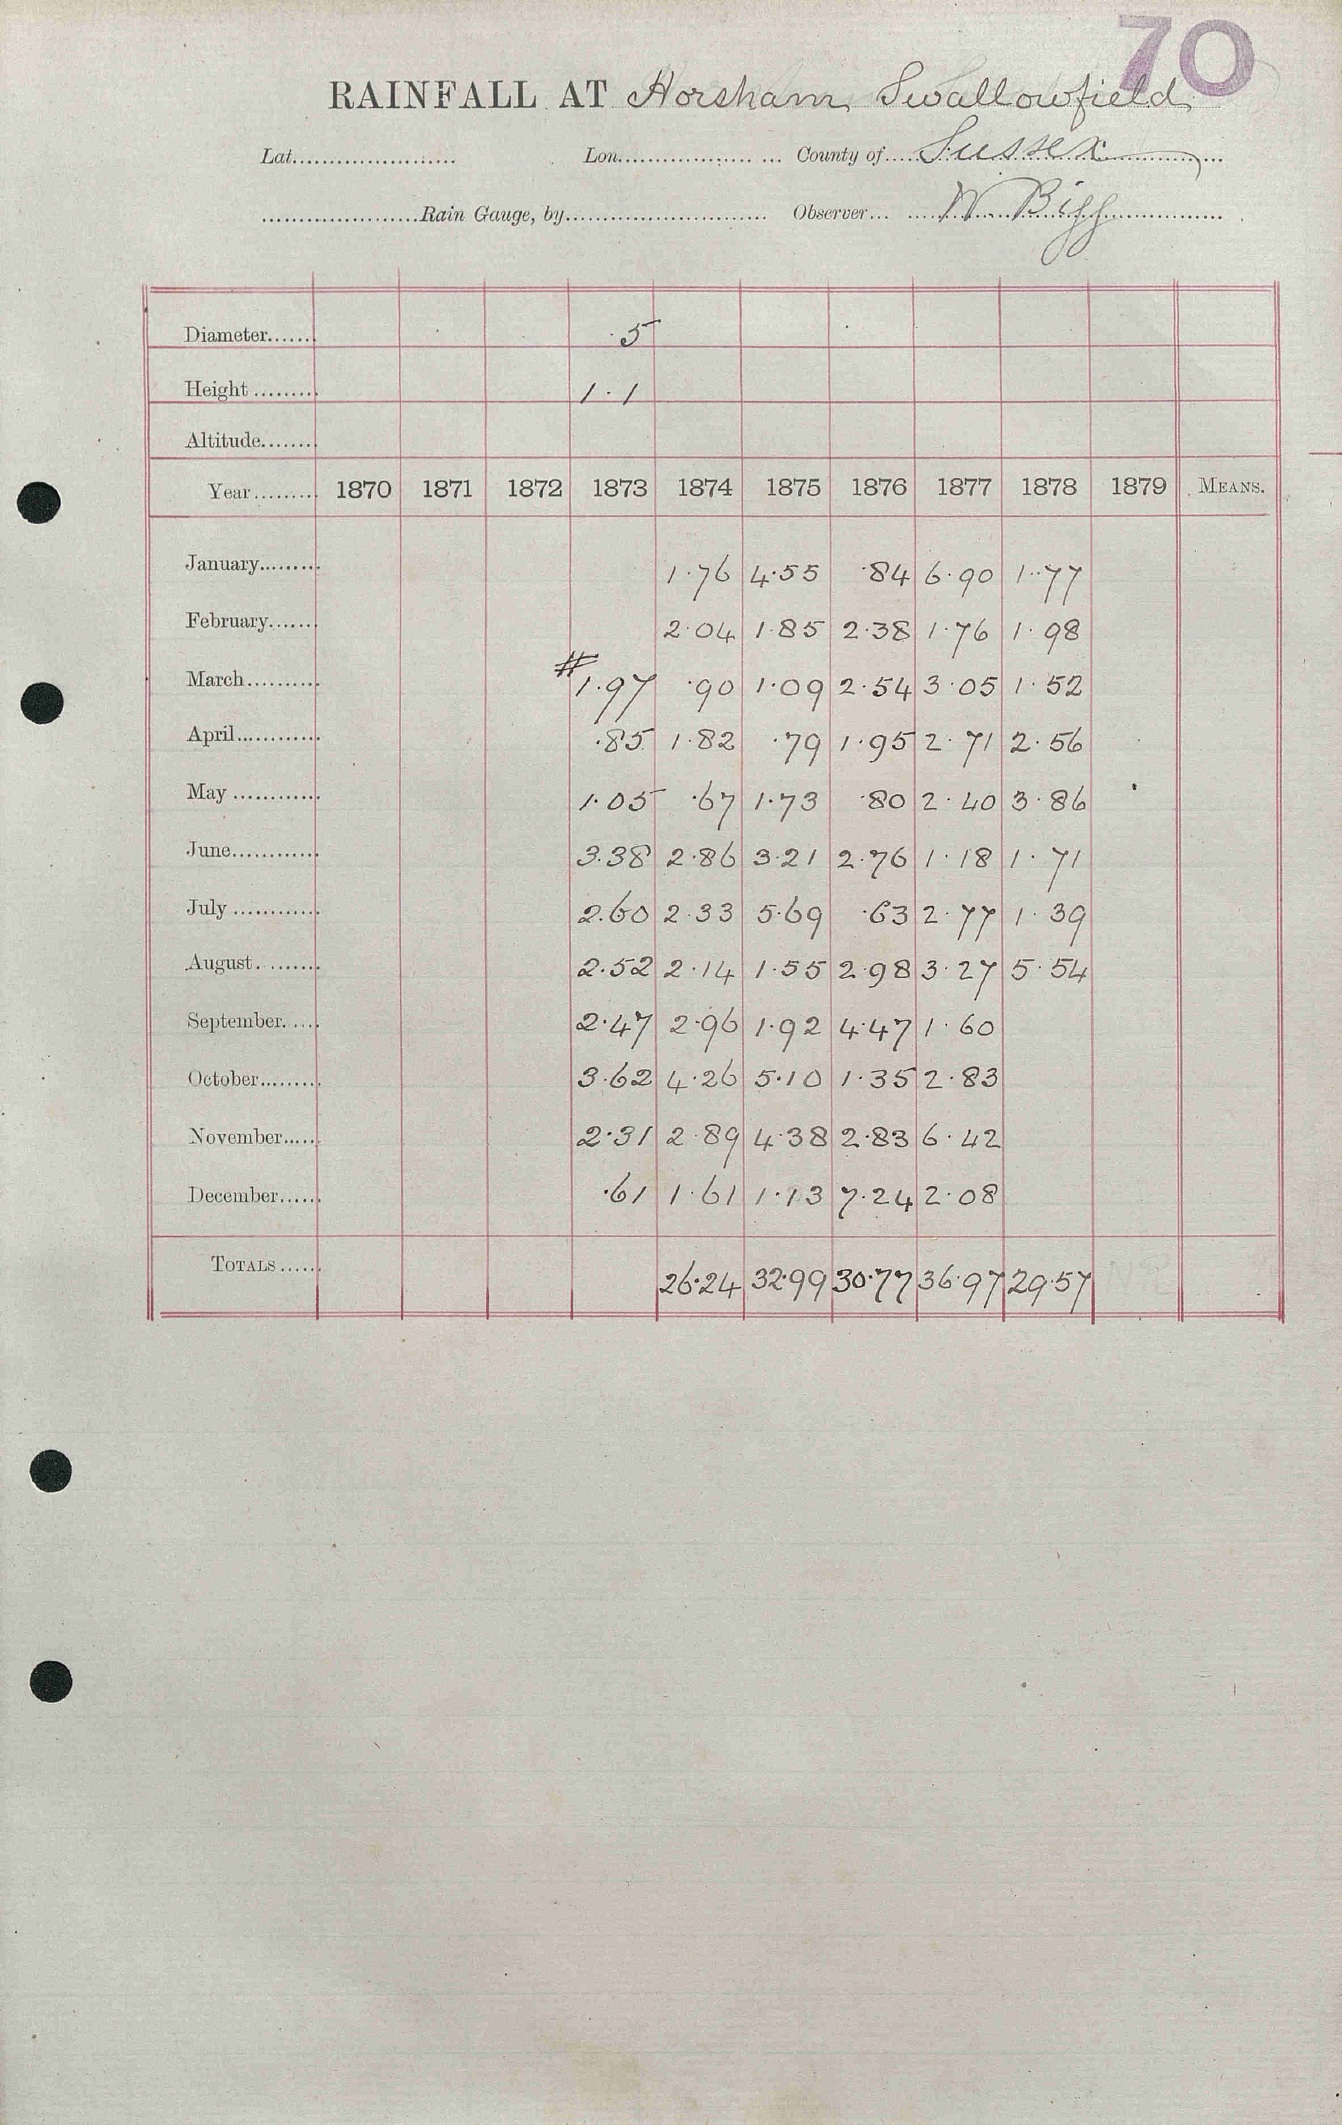 70
RAINFALL AT Horsham, Swallowfield
Lat. Lon. County of Sussex
Rain Gauge, by Observer W Bigg
Diameter 5
Height 1.1
Altitude
Year 1870 1871 1872 1873 1874 1875 1876 1877 1878 1879 MEANS.
January 1.76 4.55 .84 6.90 1.77
February 2.04 1.85 2.38 1.76 1.98
March # 1.97 .90 1.09 2.54 3.05 1.52
April .85 1.82 .79 1.95 2.71 2.56
May 1.05 .67 1.73 .80 2.40 3.86
June 3.38 2.86 3.21 2.76 1.18 1.71
July 2.60 2.33 5.69 .63 2.77 1.39
August 2.52 2.14 1.55 2.98 3.27 5.54
September 2.47 2.96 1.92 4.47 1.60
October 3.62 4.26 5.10 1.35 2.83
November 2.31 2.89 4.38 2.83 6.42
December .61 1.61 1.13 7.24 2.08
TOTALS 26.24 32.99 30.77 36.97 29.57